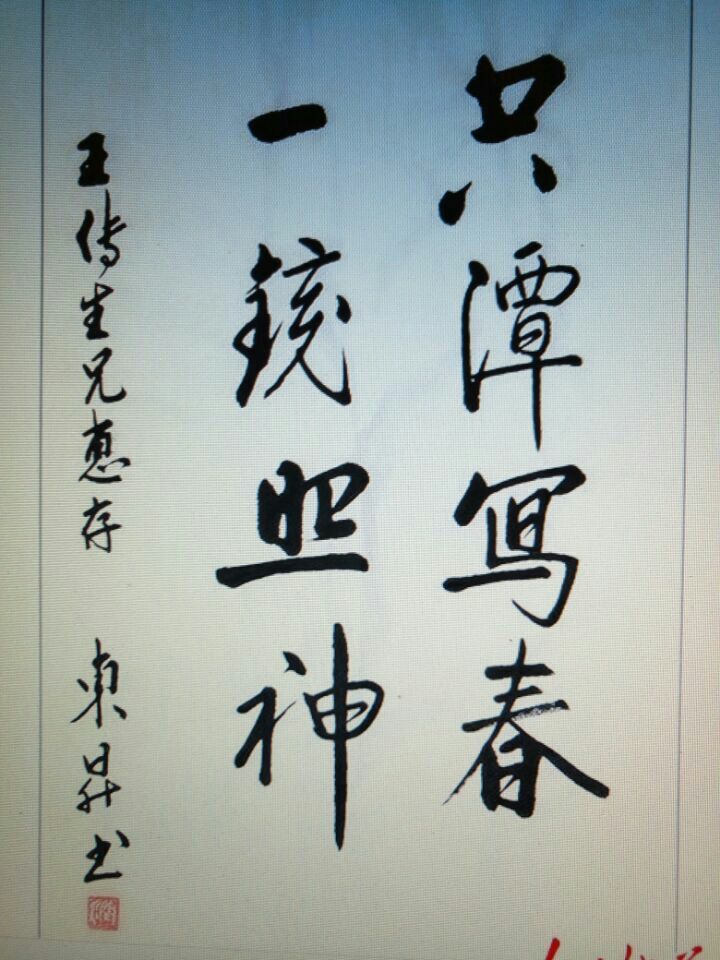 共潭寫春
一鏡照神
王傳生兄惠存 東昇书